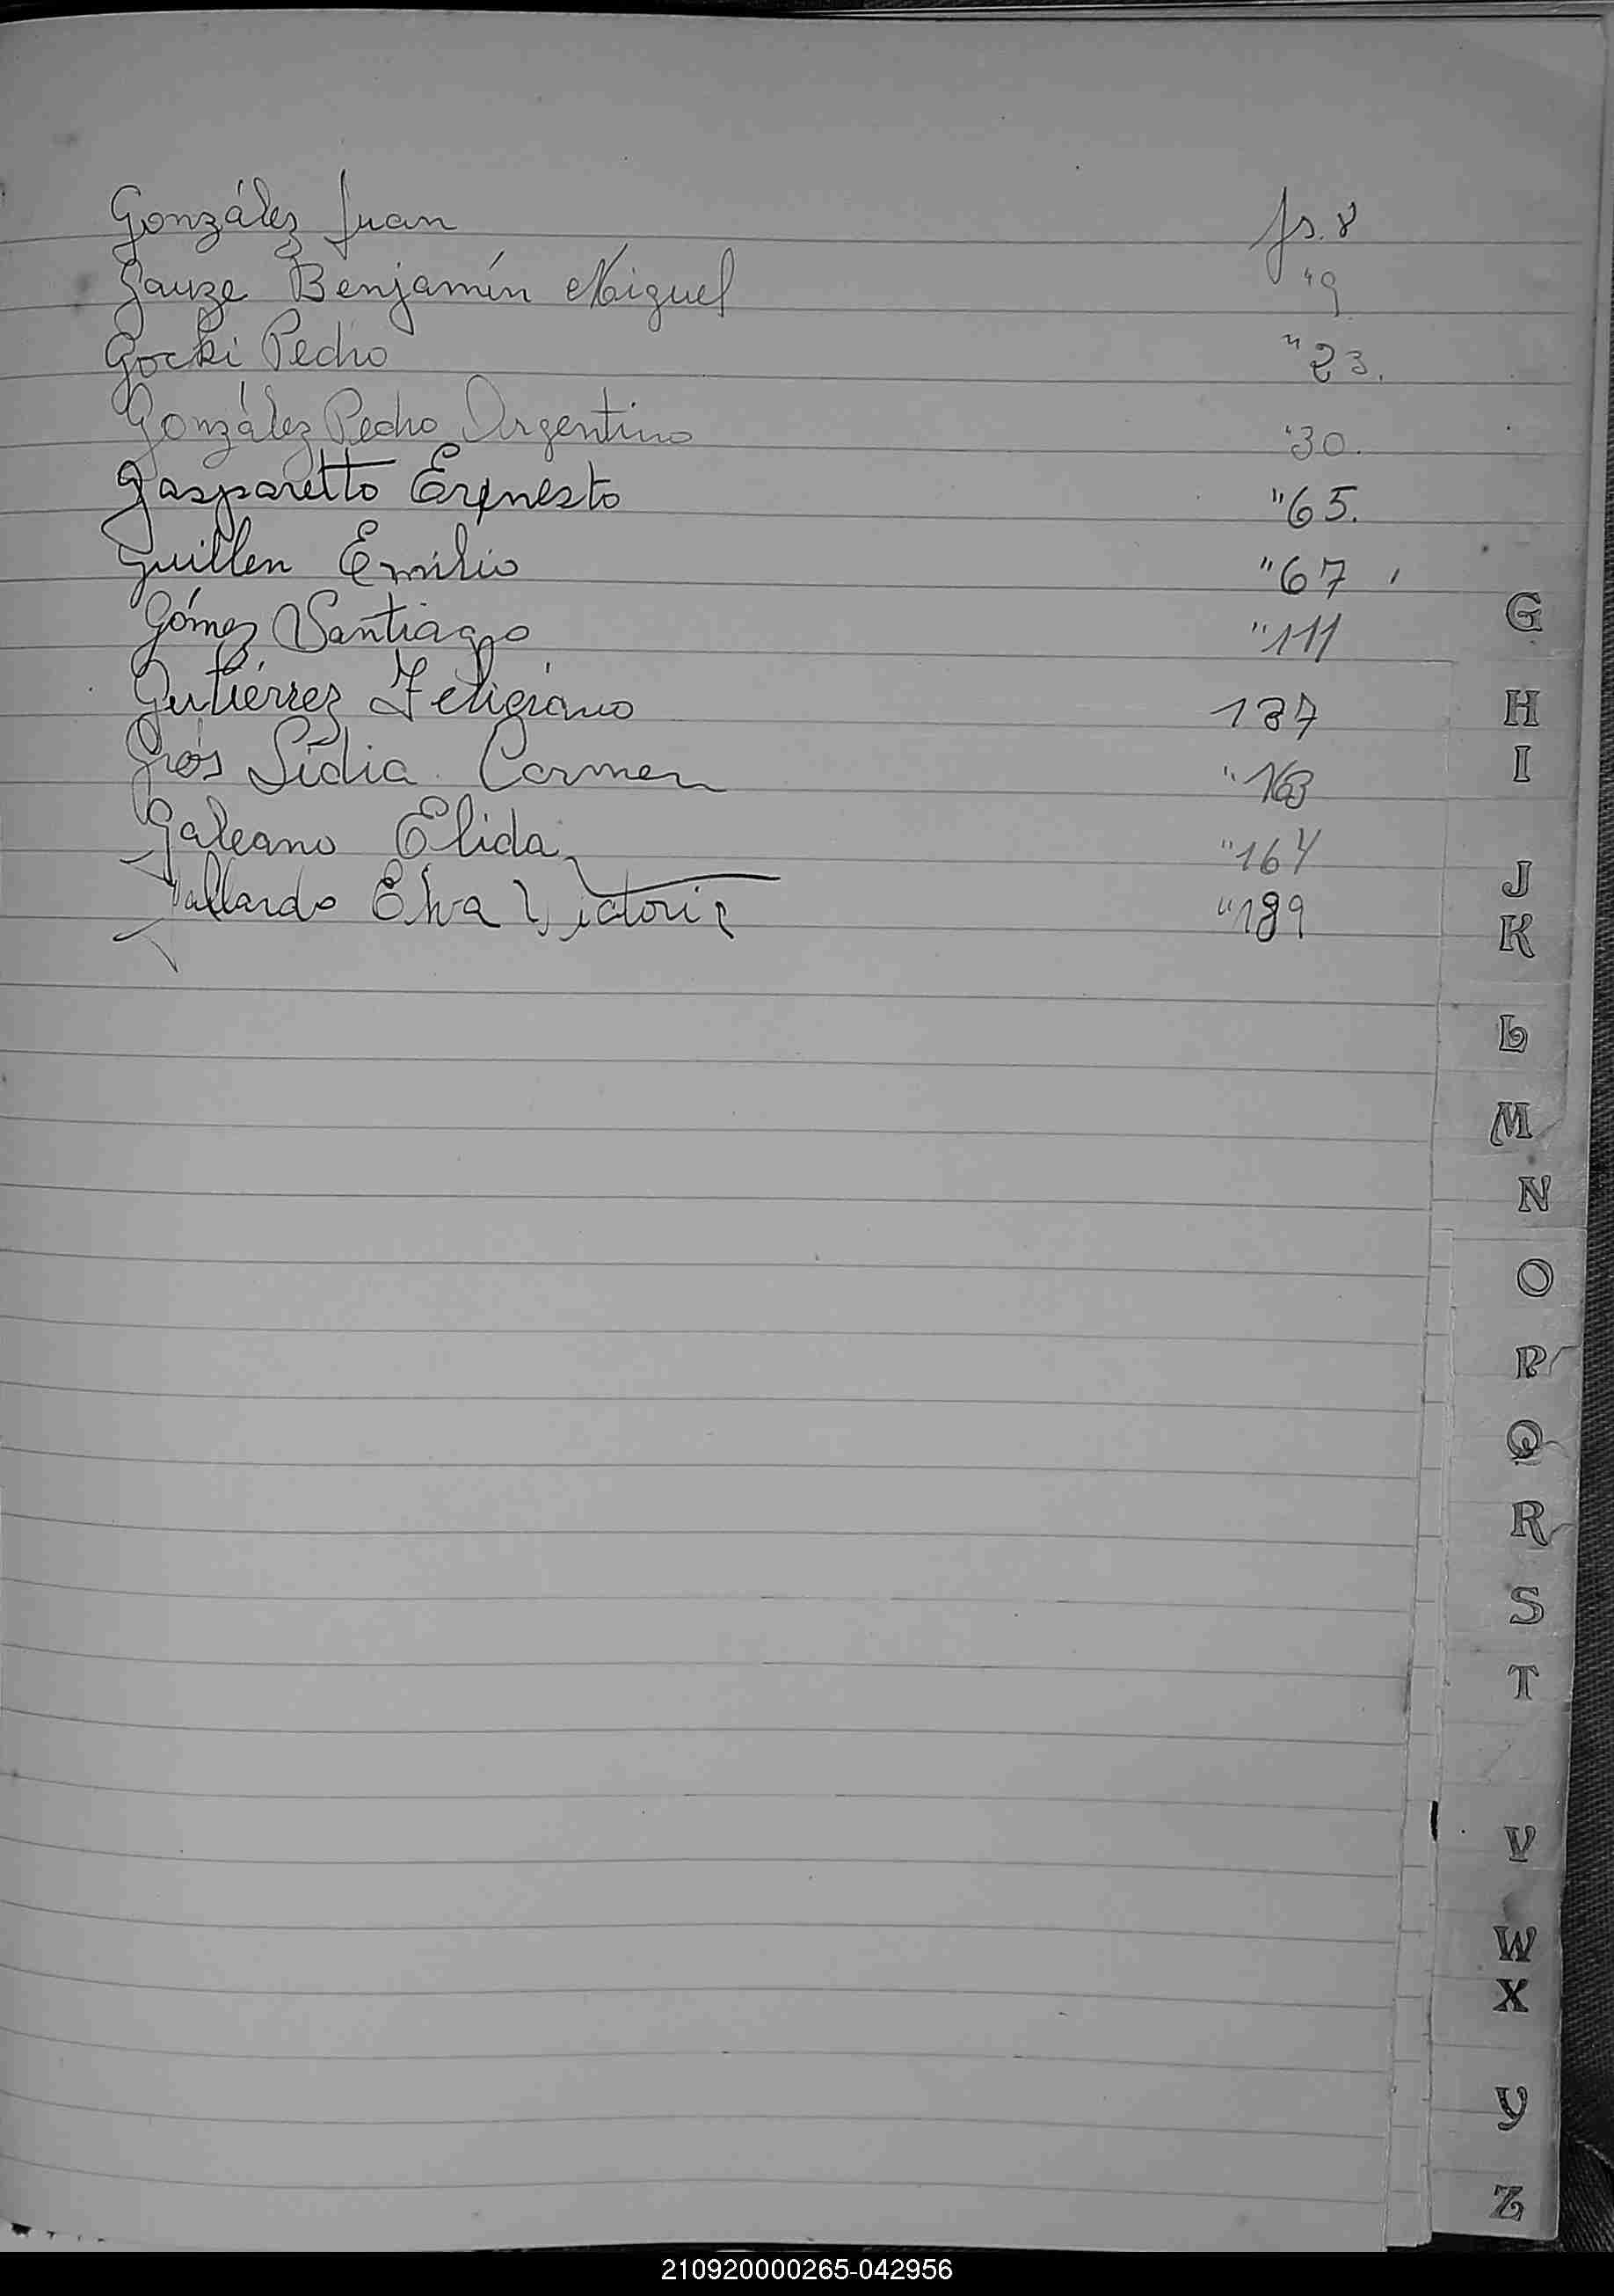 González Juan fs. 8
Gauze Benjamín Miguel "9
Gocki Pedro "23.
González Pedro Argentino "30.
Gasparetto Ernesto "65.
Guillen Emilio "67
Gómez Santiago "111
Gutiérrez Feliciano 137
Grós Lidia Carmen "163
Galeano Elida "164
Gallardo Elva Victoria "189
G
H
I
J
K
L
M
N
O
P
Q
R
S
T
V
W
X
Y
Z
210920000265-042956